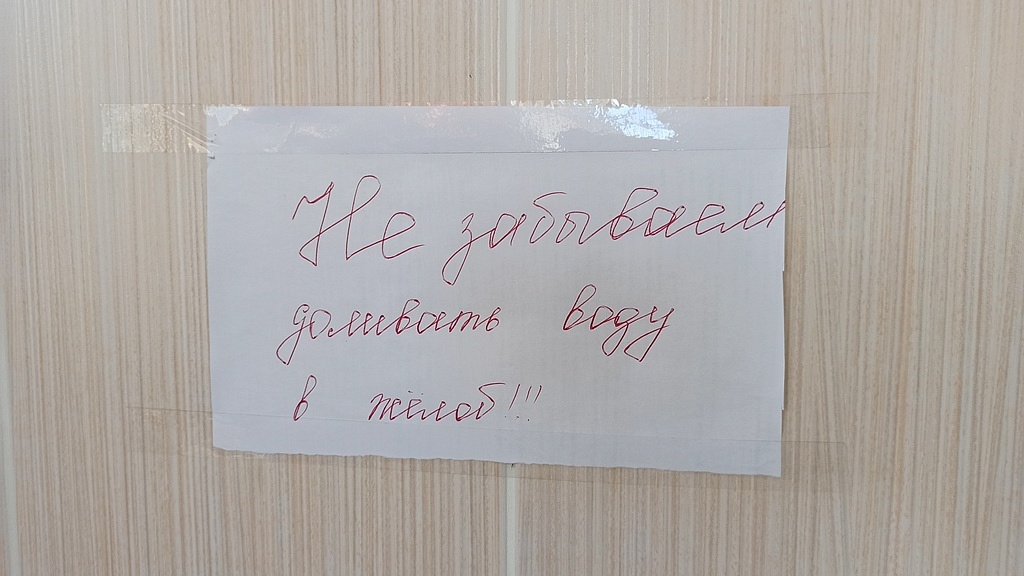 Не забываем
доливать воду
в жёлоб!!!